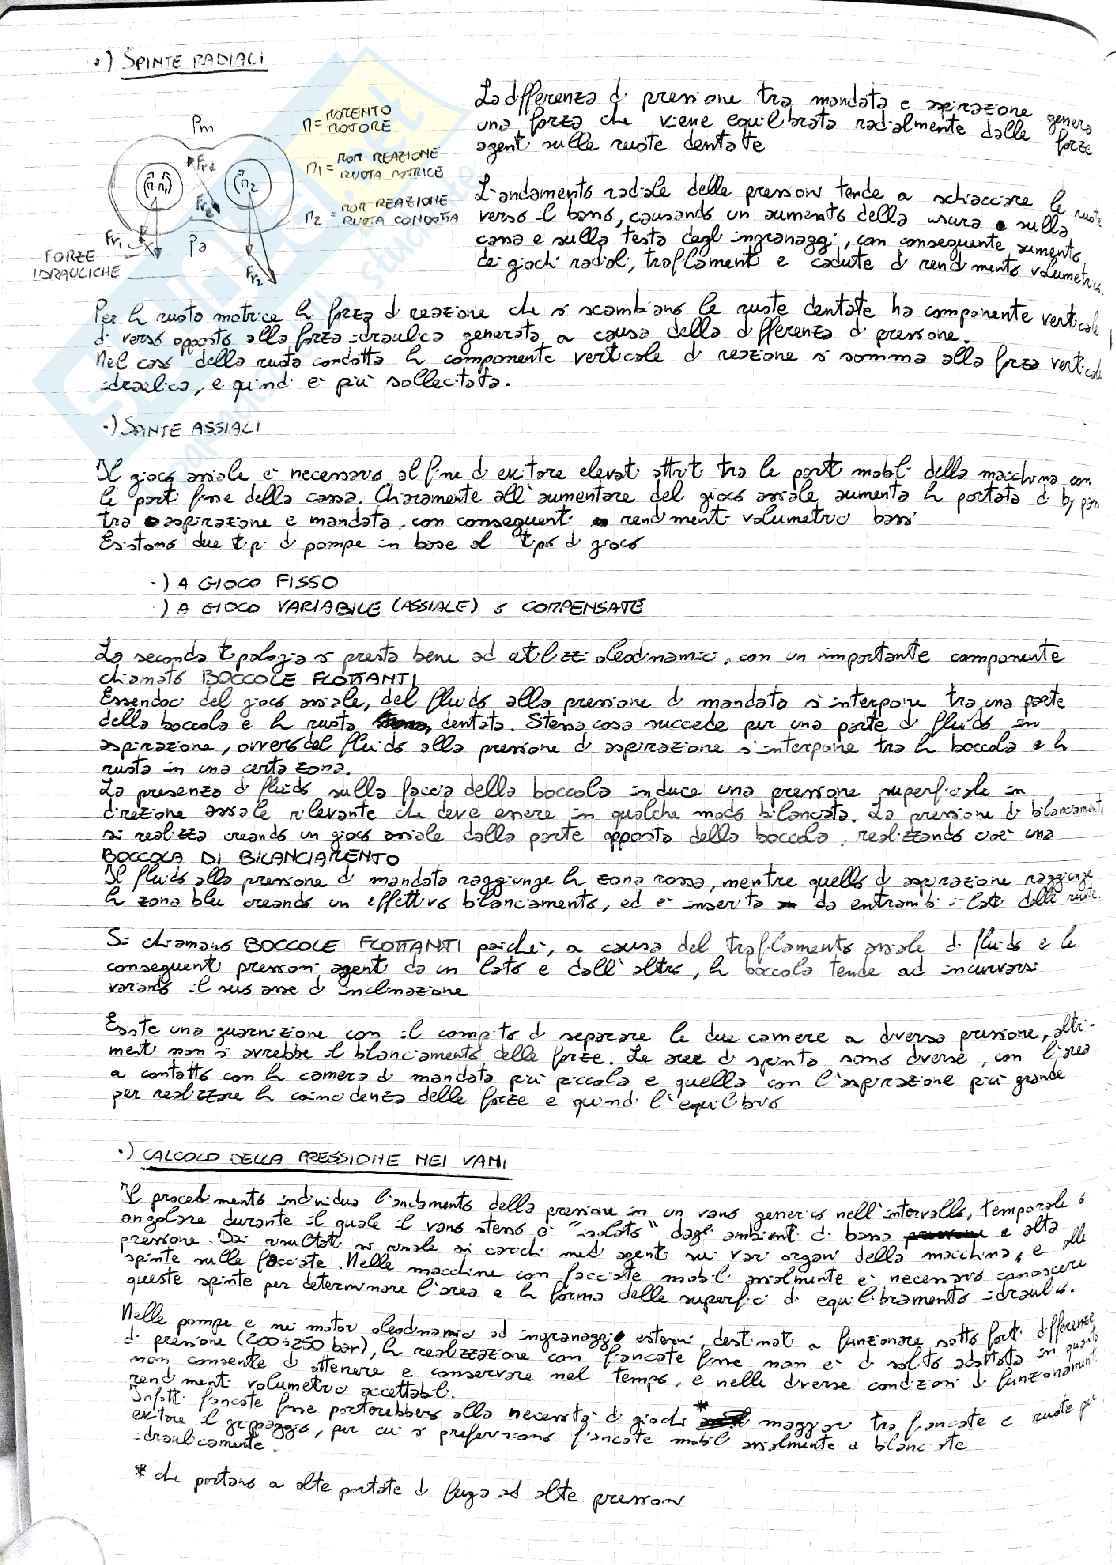 ·) SPINTE RADIALI
Pm
n = MOMENTO MOTORE
n1 = MOM REAZIONE RUOTA MOTRICE
n2 = MOM REAZIONE RUOTA CONDOTTA
Fr2
Fr1
Pa
Fr2
FORZE
IDRAULICHE
La differenza di pressione tra mandata e aspirazione genera
una forza che viene equilibrata radialmente dalle forze
agenti sulle ruote dentate
L'andamento radiale delle pressioni tende a schiacciare le ruote
verso il basso, causando un aumento della usura sulla
cassa e sulla testa degli ingranaggi, con conseguente aumento
dei giochi radiali, trafilamenti e cadute di rendimento volumetrico.
Per la ruota motrice la forza di reazione che si scambiano le ruote dentate ha componente verticale
di verso opposto alla forza idraulica generata a causa della differenza di pressione.
Nel caso della ruota condotta la componente verticale di reazione si somma alla forza verticale
idraulica, e quindi è più sollecitata.
·) SPINTE ASSIALI
Il gioco assiale è necessario al fine di evitare elevati attriti tra le parti mobili della macchina con
le parti fisse della cassa. Chiaramente all'aumentare del gioco assiale aumenta la portata di by pass
tra aspirazione e mandata, con conseguenti rendimenti volumetrici bassi
Esistono due tipi di pompe in base al tipo di gioco
·) A GIOCO FISSO
·) A GIOCO VARIABILE (ASSIALE) o COMPENSATE
La seconda tipologia si presta bene ad utilizzi oleodinamici, con un importante componente
chiamato BOCCOLE FLOTTANTI
Essendoci del gioco assiale, del fluido alla pressione di mandata si interpone tra una parte
della boccola e la ruota dentata. Stessa cosa succede per una parte di fluido in
aspirazione, ovvero del fluido alla pressione di aspirazione si interpone tra la boccola e la
ruota in una certa zona.
La presenza di fluido sulla faccia della boccola induce una pressione superficiale in
direzione assiale rilevante che deve essere in qualche modo bilanciata. La pressione di bilanciamento
si realizza creando un gioco assiale dalla parte opposta della boccola, realizzando cioè una
BOCCOLA DI BILANCIAMENTO
Il fluido alla pressione di mandata raggiunge la zona rossa, mentre quello di aspirazione raggiunge
la zona blu creando un effettivo bilanciamento, ed è inserita da entrambi i lati delle ruote.
Si chiamano BOCCOLE FLOTTANTI poiché, a causa del trafilamento assiale di fluido e le
conseguenti pressioni agenti da un lato e dall'altro, la boccola tende ad incurvarsi
variando il suo asse di inclinazione
Esiste una guarnizione con il compito di separare le due camere a diversa pressione, altri-
menti non si avrebbe il bilanciamento delle forze. Le aree di spinta sono diverse, con l'area
a contatto con la camera di mandata più piccola e quella con l'aspirazione più grande
per realizzare la coincidenza delle forze e quindi l'equilibrio
·) CALCOLO DELLA PRESSIONE NEI VANI
Il procedimento individua l'andamento della pressione in un vano generico nell'intervallo, temporale o
angolare durante il quale il vano stesso è "isolato" dagli ambienti di bassa e alta
pressione. Dai risultati si risale ai carichi medi agenti sui vari organi della macchina, e alle
spinte sulle facciate. Nelle macchine con facciate mobili assialmente è necessario conoscere
queste spinte per determinare l'area e la forma delle superfici di equilibramento idraulico.
Nelle pompe e nei motori oleodinamici ad ingranaggi esterni, destinati a funzionare sotto forti differenze
di pressione (200÷250 bar), la realizzazione con fiancate fisse non è di solito adottata in quanto
non consente di ottenere e conservare nel tempo, e nelle diverse condizioni di funzionamento
rendimenti volumetrici accettabili.
Infatti fiancate fisse porterebbero alla necessità di giochi * maggiori tra fiancate e ruote per
evitare il grippaggio, per cui si preferiscono fiancate mobili assialmente e bilanciate
idraulicamente.
* che portano a alte portate di fuga ad alte pressioni